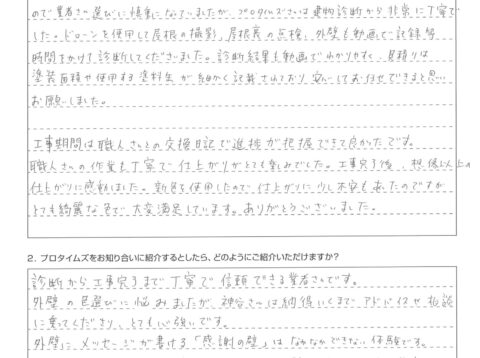 ので業者さん選びに慎重になっていましたが、プロタイムズさんは建物診断から非常に丁寧で
した。ドローンを使用して屋根の撮影、屋根裏の点検、外壁も動画で記録解
時間をかけて診断してくださいました。診断結果も動画でわかりやすく、見積りは
塗装面積や使用する塗料缶が細かく記載されており安心してお任せできると思い
お願いしました。
工事期間は職人さんとの交換日記で進捗が把握できて良かったです。
職人さんの作業も丁寧で仕上がりがとても楽しみでした。工事完了後、想像以上の
仕上がりに感動しました。新色を使用したので仕上がりに少し不安もあったのですが
とても綺麗な色で大変満足しています。ありがとうございました。
2. プロタイムズをお知り合いに紹介するとしたら、どのようにご紹介いただけますか?
診断から工事完了まで丁寧で信頼できる業者さんです。
外壁の色選びに悩みましたが、神谷さんは納得いくまでアドバイスや相談
に乗ってくださり、とても心強いです。
外壁にメッセージが書ける「感謝の壁」はなかなかできない体験です。